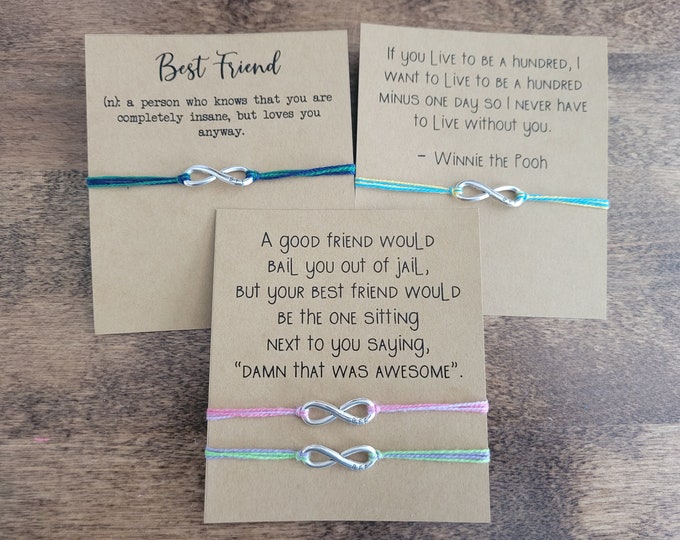 Best Friend
(n): a person who knows that you are
completely insane, but loves you
anyway.
If you Live to be a hundred, I
want to Live to be a hundred
minus one day so I never have
to Live without you.
- Winnie the Pooh
A good friend would
bail you out of jail,
but your best friend would
be the one sitting
next to you saying,
“damn that was awesome”.
BFF
BFF